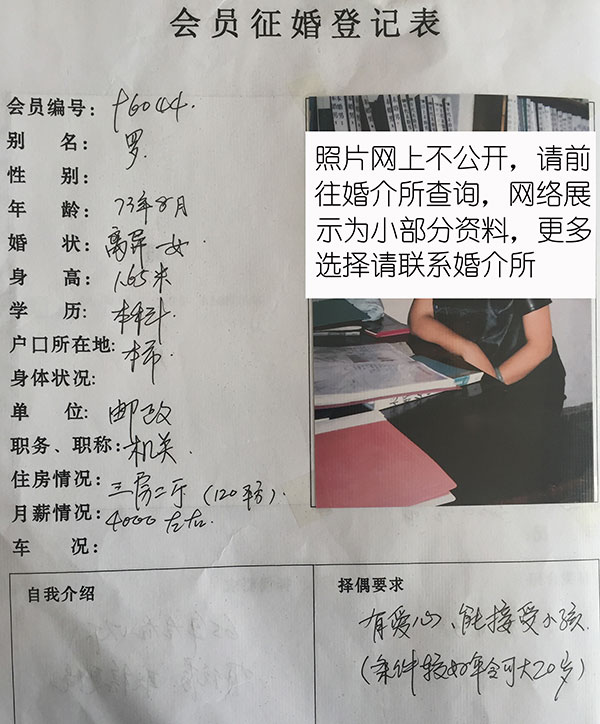 会员征婚登记表
会员编号: 16044.
别 名: 罗.
性 别:
年 龄: 73年8月
婚 状: 离异 女
身 高: 1.65米
学 历: 本科.
户口所在地: 本市.
身体状况:
单 位: 邮政
职务、职称: 机关.
住房情况: 三房二厅 (120平方).
月薪情况: 4000左右.
车 况:
照片网上不公开，请前
往婚介所查询，网络展
示为小部分资料，更多
选择请联系婚介所
自我介绍
择偶要求
有爱心、能接受小孩.
(条件较好年令可大20岁)